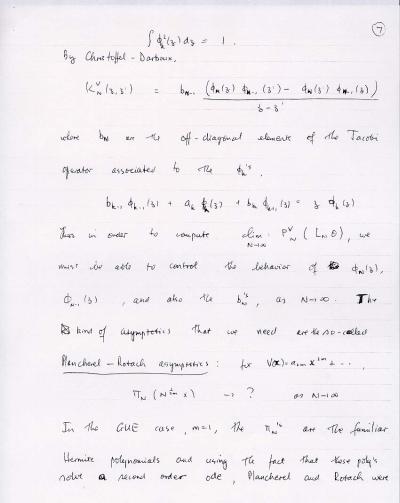 7
∫ ϕ_k²(z) dz = 1.
By Christoffel-Darboux,
K_N^V (z, z') = b_{N-1} (ϕ_N(z) ϕ_{N-1}(z') − ϕ_N(z') ϕ_{N-1}(z)) / z − z'
where b_N are the off-diagonal elements of the Jacobi
operator associated to the ϕ_k's.
b_{k-1} ϕ_{k-1}(z) + a_k ϕ_k(z) + b_k ϕ_{k+1}(z) = z ϕ_k(z)
Thus in order to compute lim_{N→∞} P_N^V (L_N θ), we
must be able to control the behavior of ϕ_N(z),
ϕ_{N-1}(z), and also the b_N's, as N→∞. The
kind of asymptotics that we need are the so-called
Plancherel-Rotach asymptotics: for V(x) = a_{2m} x^{2m} + ...,
π_N (N^{1/2m} x) → ? as N→∞
In the GUE case, m=1, the π_N's are the familiar
Hermite polynomials and using the fact that these poly's
solve a second order ode, Plancherel and Rotach were